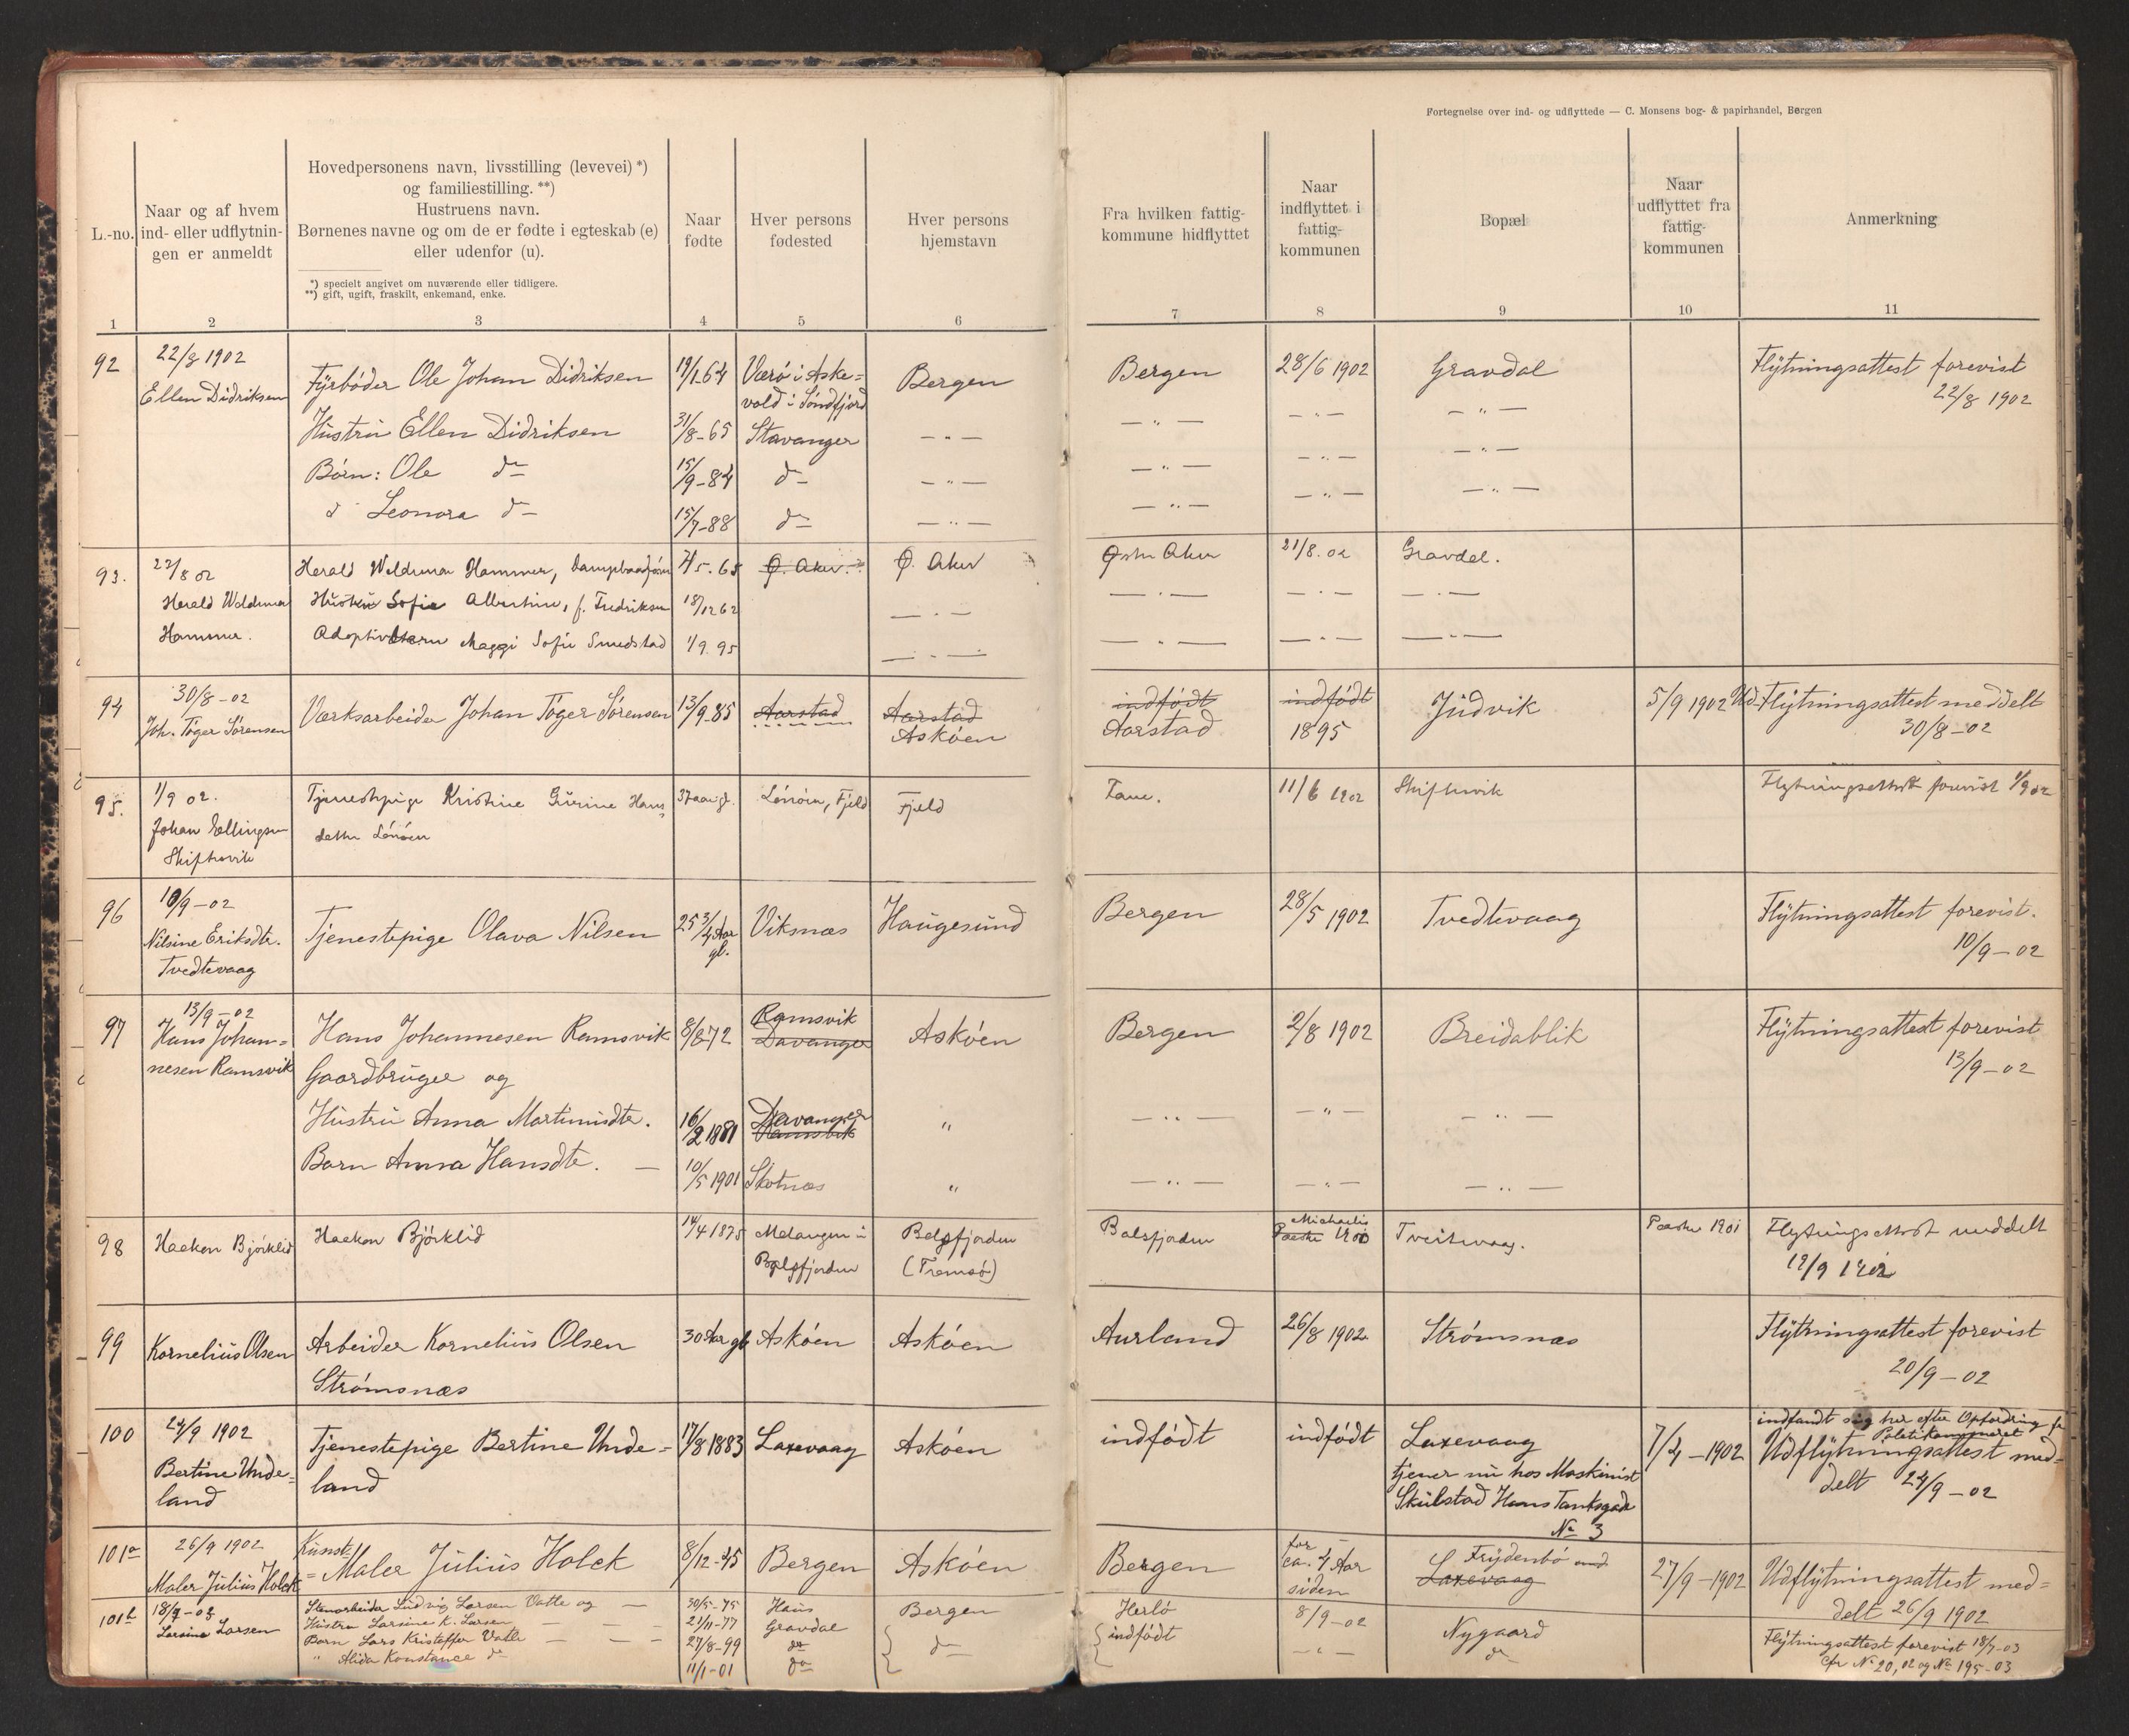 Fortegnelse over ind- og udflyttede — C. Monsens bog- & papirhandel, Bergen
L.-no.
Naar og af hvem
ind- eller udflytnin-
gen er anmeldt
Hovedpersonens navn, livsstilling (levevei) *)
og familiestilling. **)
Hustruens navn.
Børnenes navne og om de er fødte i egteskab (e)
eller udenfor (u).
*) specielt angivet om nuværende eller tidligere.
**) gift, ugift, fraskilt, enkemand, enke.
Naar
fødte
Hver persons
fødested
Hver persons
hjemstavn
Fra hvilken fattig-
kommune hidflyttet
Naar
indflyttet i
fattig-
kommunen
Bopæl
Naar
udflyttet fra
fattig-
kommunen
Anmerkning
1 2 3 4 5 6 7 8 9 10 11
92 22/8 1902 Fyrbøder Ole Johan Didriksen 19/1 64 Værø i Aske= Bergen Bergen 28/6 1902 Gravdal Flytningsattest forevist
Ellen Didriksen vold i Søndfjord 22/8 1902
Hustru Ellen Didriksen 31/8-65 Stavanger — " — — " — — " — — " —
Børn: Ole do 15/9-84 do — " — — " — — " — — " —
d Leonora do 15/7-88 do — " — — " — — " — — " —
93. 22/8 02 Herald Woldemar Hammer, 4/5. 65 Ø. Aker Ø. Aker Østre Aker 21/8. 02 Gravdal.
Herald Woldemar Hustru Sofie Albertine, f. Fredriksen 18/12 62 — " — — " — — " — — " —
Hammer. Adoptivbarn Maggi Sofie Smedstad 1/9. 95 — " — — " — — " — — " —
94 30/8-02 Værksarbeider Johan Tøger Sørensen 13/9-85 Aarstad Aarstad indfødt indfødt Judvik 5/9 1902 Flytningsattest meddelt
Joh. Tøger Sørensen Askøen Aarstad 1895 30/8-02
95. 1/9 02. Tjenestepige Kristine Gurine Hans 37 aar gl. Lønøen, Fjeld Fjeld 11/6 1902 Skiftesvik Flytningsattest forevist 1/9 02
Johan Ellingsen datter Lønøen
Skiftesvik
96 10/9-02 Tjenestepige Olava Nilsen 25 3/4 Aar Viksnæs Haugesund Bergen 28/5 1902 Tvedtevaag Flytningsattest forevist.
Nilsine Eriksdtr. gl. 10/9-02
Tvedtevaag
97 13/9-02 Ramsvik
Hans Johan= Hans Johannesen Ramsvik 8/8 72 Davanger Askøen Bergen 2/8 1902 Breidablik Flytningsattest forevist
nesen Ramsvik Gaardbruger og 13/9-02
Hustru Anna Martinusdtr. 16/2 1881 Davanger " — " — — " — — " —
Ramsvik
Barn Anna Hansdtr. — 10/5 1901 Skotnæs " — " — — " — — " —
98 Haakon Bjørklid Haakon Bjørklid 14/4 1875 Malangen i Balsfjorden Balsfjorden Michaelis Tveitevaag. Paaske 1901 Flytningsattest meddelt
Balsfjorden (Tromsø) Paaske 1900 19/9 1902
99 Kornelius Olsen Arbeider Kornelius Olsen 30 Aar gl Askøen Askøen Aurland 26/8 1902 Strømsnæs Flytningsattest forevist
Strømsnæs 20/9-02
100 24/9 1902 Tjenestepige Bertine Unde= 17/8 1883 Laxevaag Askøen indfødt indfødt Laxevaag 7/4-1902 indfandt sig her efter Opfordring fr
Politikammeret
Bertine Unde= land tjener nu hos Maskinist Udflytningsattest med=
land Skulstad Hans Tanksgade delt 24/9-02
No 3
101a 26/9 1902 Kunst=
Maler Julius Holck Maler Julius Holck 8/12-45 Bergen Askøen Bergen for ca. 4 Aar siden Frydenbø Laxevaag 27/9-1902 Udflytningsattest med=
delt 26/9 1902
101b 18/7-03 Stenarbeider Ludvig Larsen Vatle og — 30/5-75 Haus Bergen Herlø 8/9-02 Nygaard
Larsine Larsen Hustru Larsine K. Larsen — 21/11-77 Gravdal indfødt
Barn Lars Kristoffer Vatle — 27/8-99 do do — " — do Flytningsattest forevist 18/7-03
" Alida Konstance do 11/1-01 do cfr No 20, 02 og No 195-03